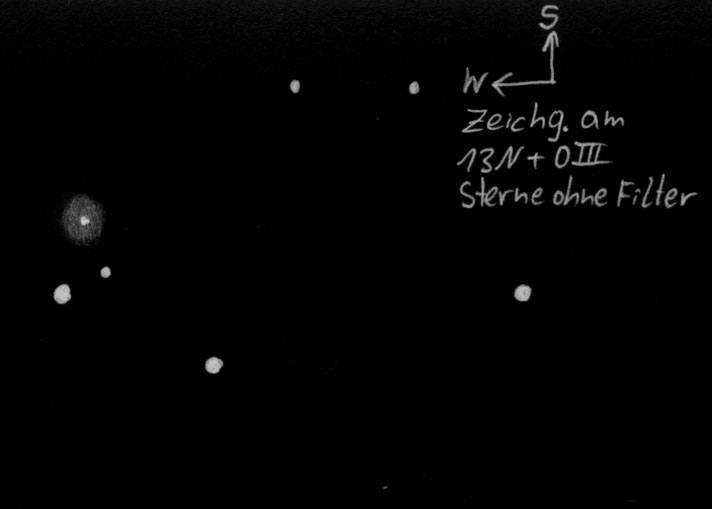 S
W
Zeichg. am
13N + OIII
Sterne ohne Filter